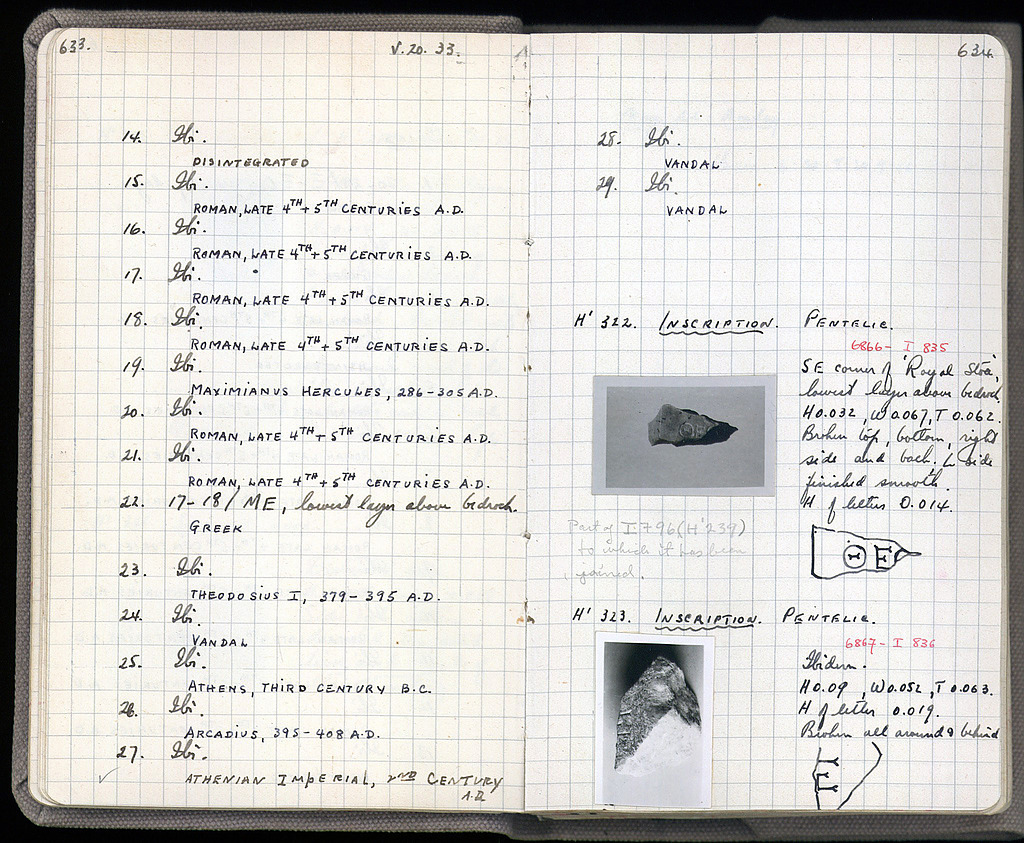 633.
V. 20. 33.
14. Ibi.
DISINTEGRATED
15. Ibi.
ROMAN, LATE 4TH + 5TH CENTURIES A.D.
16. Ibi.
ROMAN, LATE 4TH + 5TH CENTURIES A.D.
17. Ibi.
ROMAN, LATE 4TH + 5TH CENTURIES A.D.
18. Ibi.
ROMAN, LATE 4TH + 5TH CENTURIES A.D.
19. Ibi.
MAXIMIANUS HERCULES, 286-305 A.D.
20. Ibi.
ROMAN, LATE 4TH + 5TH CENTURIES A.D.
21. Ibi.
ROMAN, LATE 4TH + 5TH CENTURIES A.D.
22. 17-18/ME, lowest layer above bedrock.
GREEK
23. Ibi.
THEODOSIUS I, 379-395 A.D.
24. Ibi.
VANDAL
25. Ibi.
ATHENS, THIRD CENTURY B.C.
26. Ibi.
ARCADIUS, 395-408 A.D.
27. Ibi.
ATHENIAN IMPERIAL, 2ND CENTURY
A.D.
634.
28. Ibi.
VANDAL
29. Ibi.
VANDAL
H' 322. INSCRIPTION. PENTELIC.
6866- I 835
SE corner of 'Royal Stoa',
lowest layer above bedrock.
H 0.032, W 0.067, T 0.062.
Broken top, bottom, right
side and back. L side
finished smooth.
H of letters 0.014.
Part of I 796 (H' 239)
to which it has been
joined.
Θ Ε
H' 323. INSCRIPTION. PENTELIC.
6867- I 836
Ibidem.
H 0.09, W 0.052, T 0.063.
H of letter 0.019.
Broken all around & behind